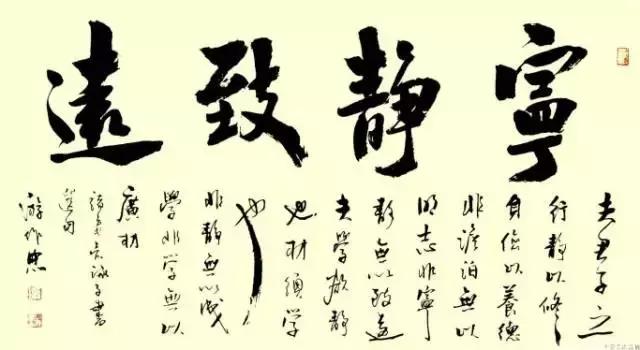 寧靜致遠
夫君子之
行靜以修
身儉以養德
非澹泊無以
明志非寧
靜無以致遠
夫學欲靜
也材須學
也
非靜無以成
學非學無以
廣材
諸葛亮誡子書